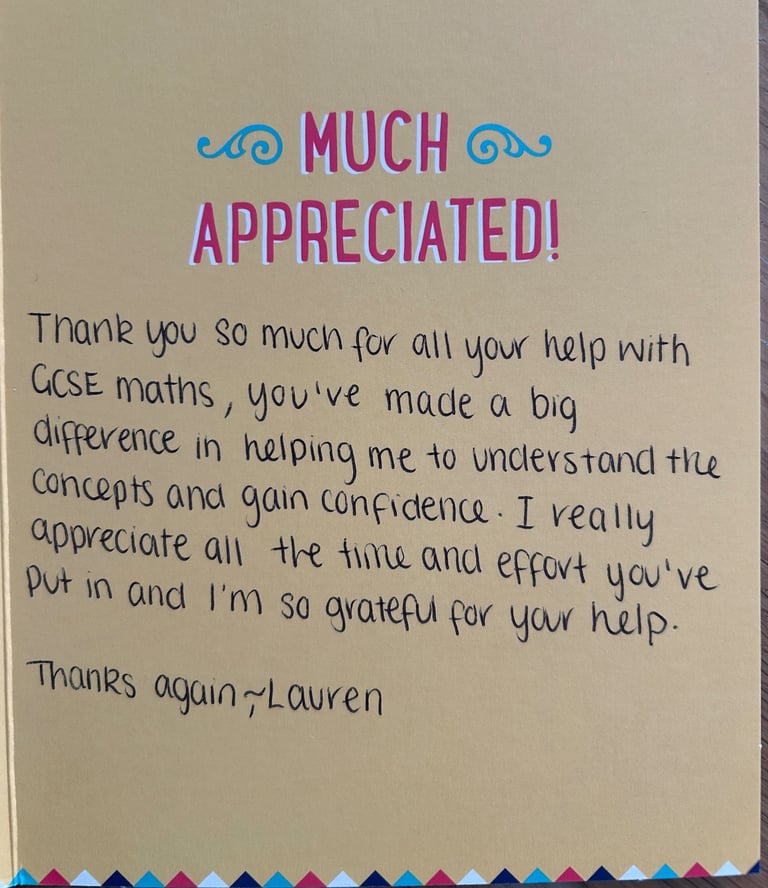 MUCH
APPRECIATED!
Thank you so much for all your help with
GCSE maths, you've made a big
difference in helping me to understand the
concepts and gain confidence. I really
appreciate all the time and effort you've
put in and I'm so grateful for your help.
Thanks again ~, Lauren